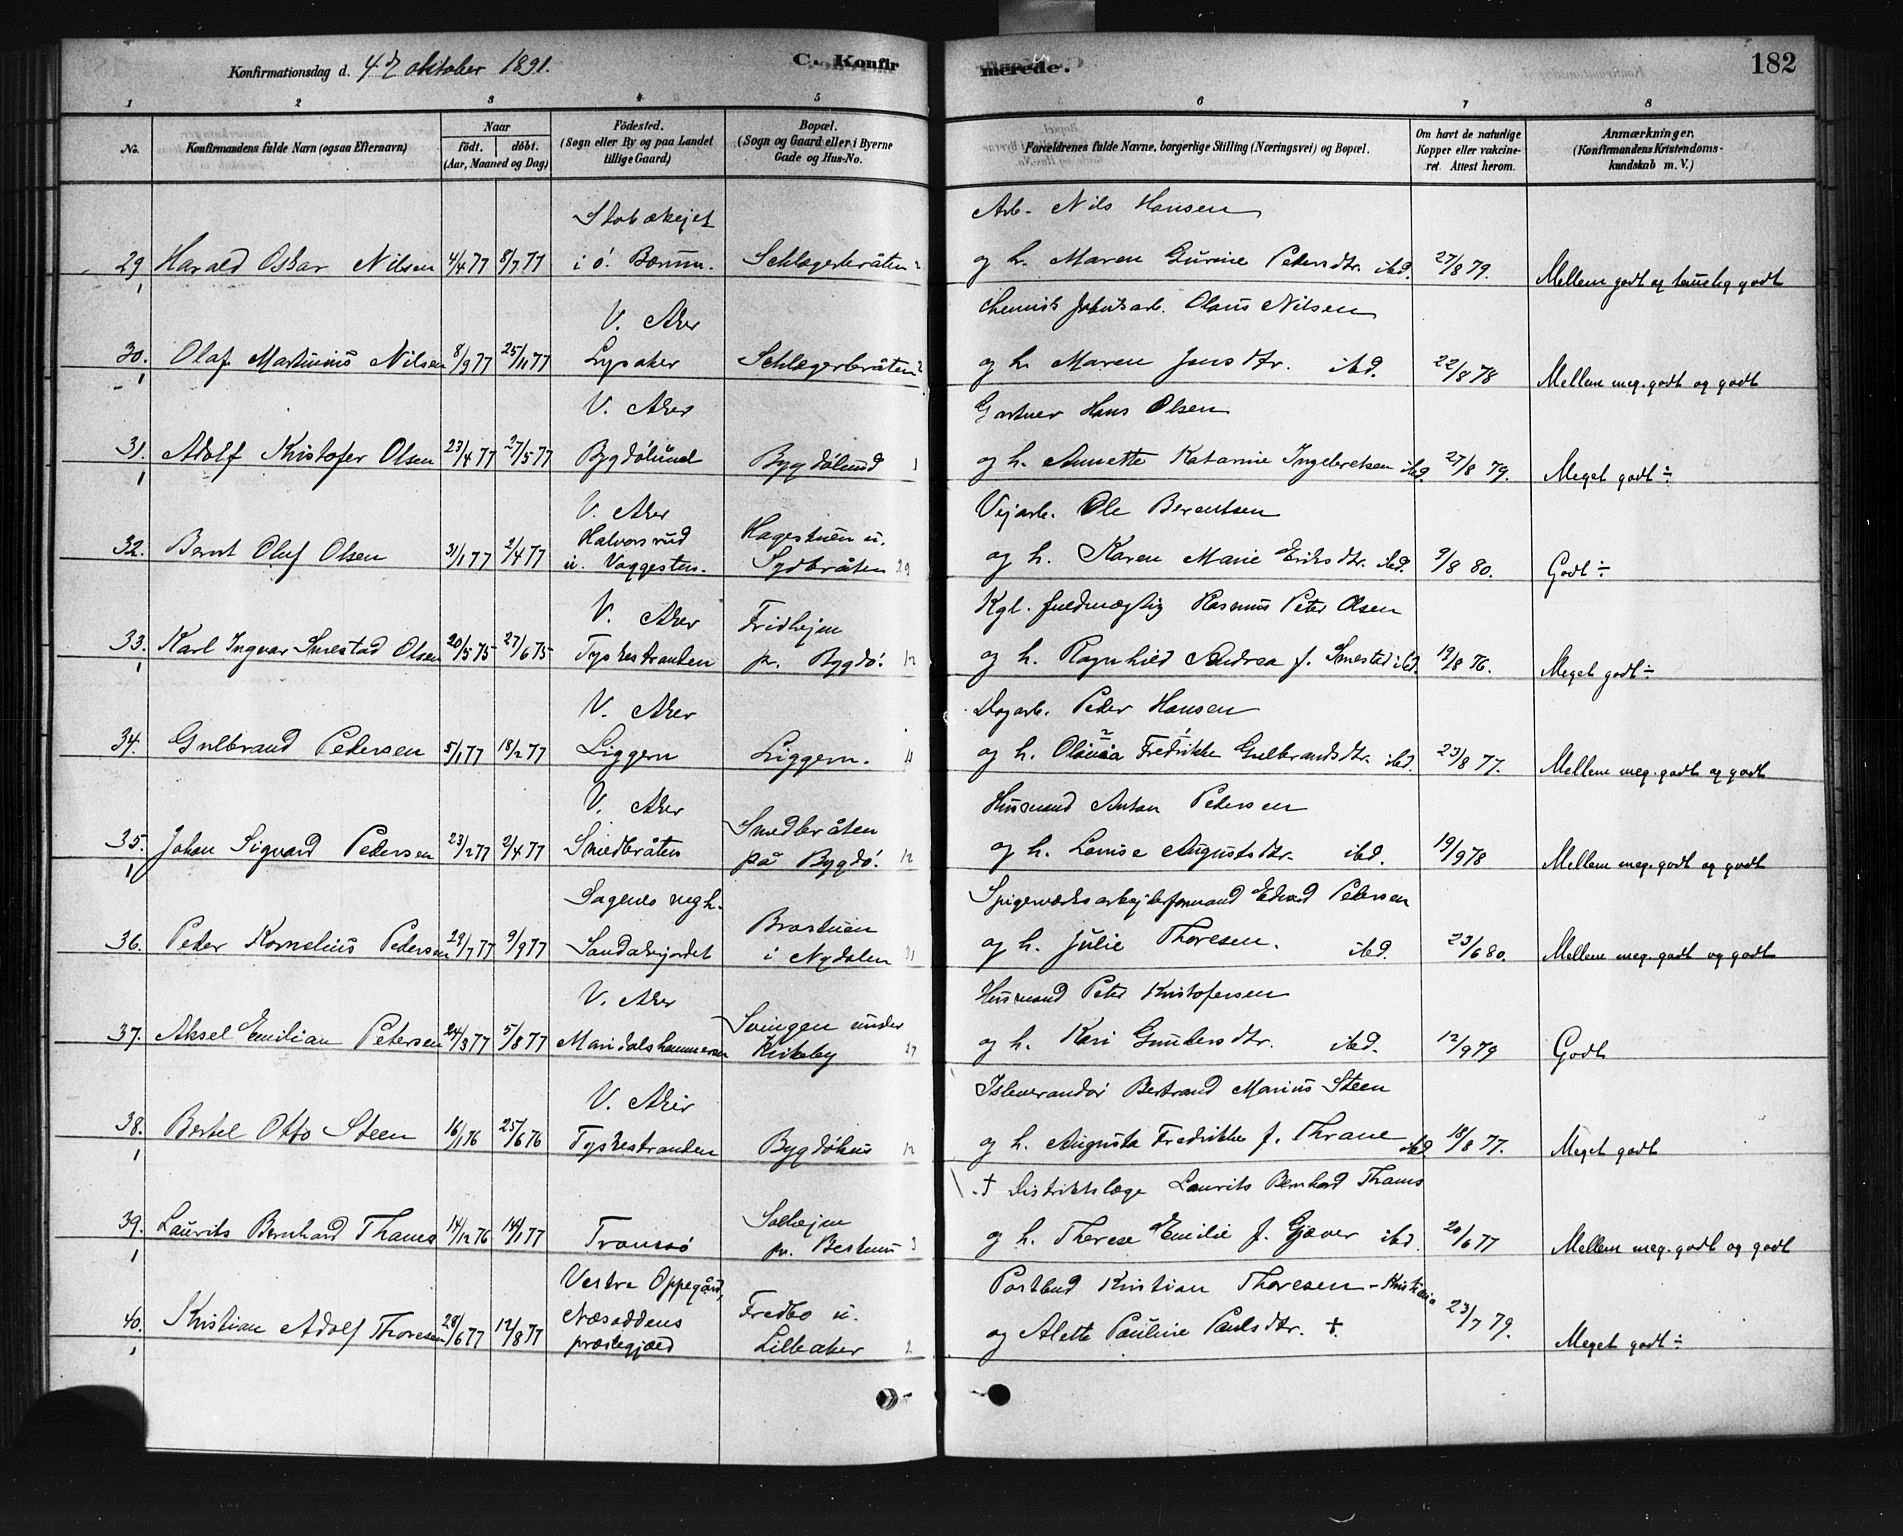 Konfirmationsdag d. 4de oktober 1891.
C. Konfirmerede.
182
1 2 3 4 5 6 7 8
No.
Konfirmandens fulde Navn (ogsaa Efternavn)
Naar
født. døbt.
(Aar, Maaned og Dag)
Födested.
(Sogn eller By og paa Landet
tillige Gaard)
Bopæl.
(Sogn og Gaard eller i Byerne
Gade og Hus-No.
Forældrenes fulde Navne, borgerlige Stilling (Næringsvei) og Bopæl.
Om havt de naturlige
Kopper eller vakcine-
ret. Attest herom.
Anmærkninger.
(Konfirmandens Kristendoms-
kundskab m. V.)
Arb. Nils Hansen
29. Harald Oskar Nilsen 4/4 77 8/7 77 i ö. Bærum. Schlægerbråten og h. Maren Gurine Pedersdtr. ibd. 27/8 79. Mellem godt og temelig godt
V. Aker Olaus Nilsen
30. Olaf Martinius Nilsen 8/9 77 25/11 77 Lysaker Schlægerbråten og h. Maren Jensdtr. ibd. 22/8 78 Mellem meg. godt og godt
V. Aker Gartner Hans Olsen
31. Adolf Kristofer Olsen 23/4 77 27/5 77 Bygdölund Bygdölund og h. Annette Katarine Ingebretsen ibd. 27/8 79. Meget godt ÷
V. Aker Vejarb. Ole Berentsen
Halvorsrud Hagestuen u.
32. Bernt Oluf Olsen 31/1 77 2/4 77 u. Vaggesten. Sydbråten 29 og h. Karen Marie Eriksdtr. ibd. 9/8 80. Godt ÷
V. Aker Fridhejm Kgl. fuldmægtig Rasmus Peter Olsen
33. Karl Ingvar Smestad Olsen 20/5 75 27/6 75 Tyskestranden pr. Bygdö. 12 og h. Ragnhild Andrea f. Smestad ibd. 19/8 76. Meget godt ÷
V. Aker Dagarb. Peder Hansen
34. Gulbrand Pedersen 5/1 77 18/2 77 Liggern Liggern. 11 og h. Olivia Fredrikke Gulbrandsdtr. ibd. 23/8 77. Mellem meg. godt og godt
V. Aker Smedbråten Husmand Anton Petersen
35. Johan Sigvard Pedersen 23/2 77 2/4 77 Smedbråten på Bygdö. 12 og h. Lovise Augustsdtr. ibd. 19/9 78 Mellem meg. godt og godt
Sagenes megh. Brostuen Spigerværksarbejderformand Edvard Pedersen
36. Peder Kornelius Pedersen 29/7 77 9/9 77 Sandakerjordet i Nydalen 31 og h. Julie Thoresen. ibd. 23/6 80. Mellem meg. godt og godt
V. Aker Svingen under Husmand Peter Kristofersen
37. Aksel Emilian Petersen 24/3 77 5/8 77 Maridalshammeren Kirkeby 27 og h. Kari Gundersdtr. ibd. 12/9 79 Godt
V. Aker Isleverandör Bertrand Marius Steen
38. Bertel Otto Steen 16/1 76 25/6 76 Tyskestranden Bygdöhus 12 og h. Augusta Fredrikke f. Thrane ibd 18/8 77. Meget godt
† Distriktslæge Laurits Bernhard Thams
39. Laurits Bernhard Thams 14/12 76 14/1 77 Tromsö Solhejm pr. Bestum 3 og h. Therese Emilie f. Gjæver ibd 20/6 77 Mellem meg. godt og godt
Vestre Oppegård, Postbud Kristian Thoresen - Kristiania
40. Kristian Adolf Thoresen 28/6 77 12/8 77 Næsoddens Fredbo u. og Alette Pauline Paulsdtr. †. 23/7 79.
præstegjæld Lilleaker 2 Meget godt ÷